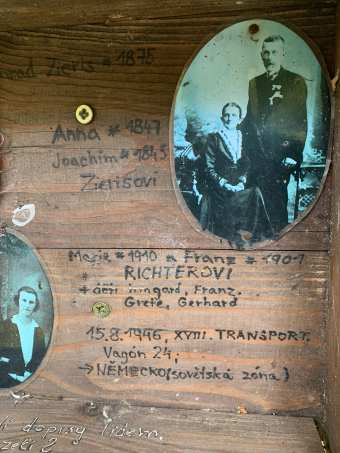 rad Zieris * 1875
Anna * 1847
Joachim * 1845
Zierisovi
Marie * 1910 a Franz * 1901
RICHTEROVI
+ děti Irmgard, Franz,
Grete, Gerhard
15.8.1946, XVIII. TRANSPORT.
Vagón 24;
→ NĚMECKO (sovětská zóna)
dopisy lidem.